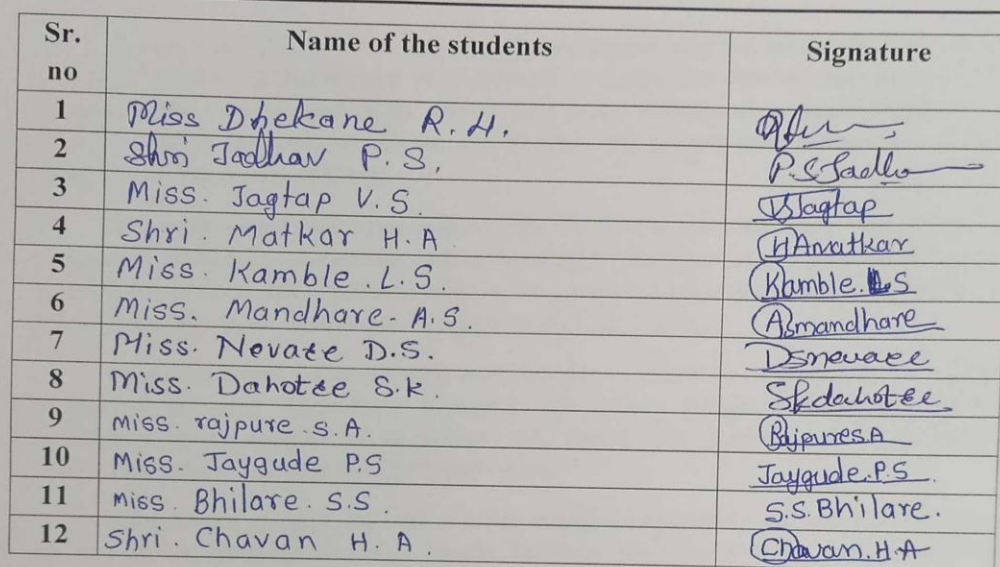 Sr. no Name of the students Signature
1 Miss Dhekane R.H.
2 Shri Jadhav P.S. P.S Jadha
3 Miss. Jagtap V.S. VSJagtap
4 Shri. Matkar H.A HAmatkar
5 Miss. Kamble .L.S. Kamble.LS
6 Miss. Mandhare- A.S. Asmandhare
7 Miss. Nevate D.S. Dsnevate
8 Miss. Dahotee S.K. Skdahotee
9 Miss. rajpure .S.A. RajpureS.A
10 Miss. Jaygude P.S Jaygude.P.S.
11 Miss. Bhilare. S.S. S.S. Bhilare.
12 Shri. Chavan H.A. Chavan.H.A